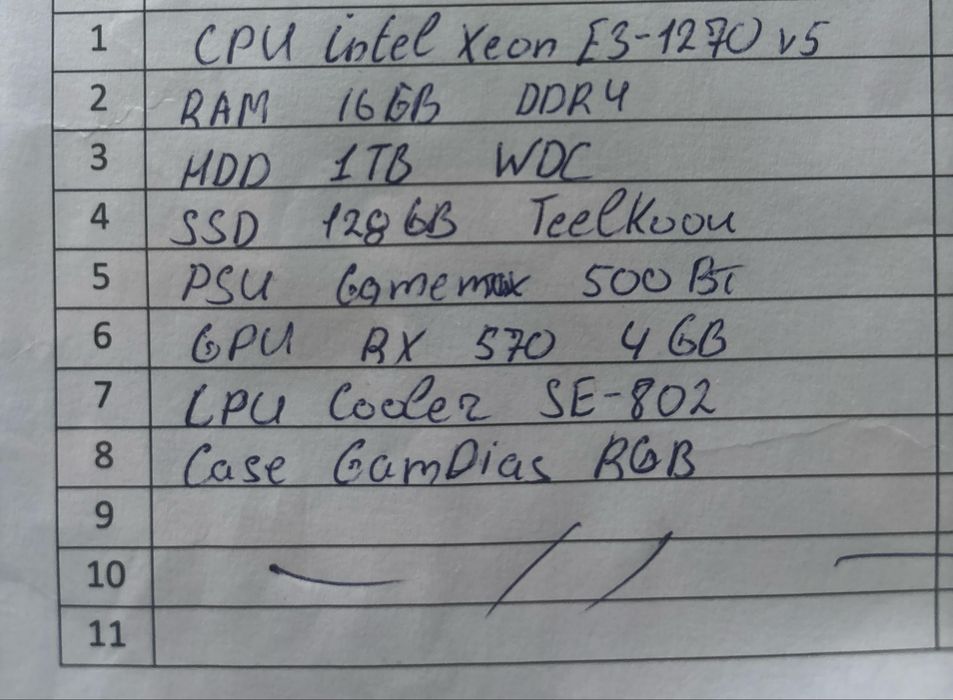 1 CPU intel Xeon E3-1270 v5
2 RAM 16GB DDR4
3 HDD 1TB WDC
4 SSD 128GB TeelKoou
5 PSU Gamemax 500Вт
6 GPU RX 570 4GB
7 CPU Cooler SE-802
8 Case GamDias RGB
9
10
11